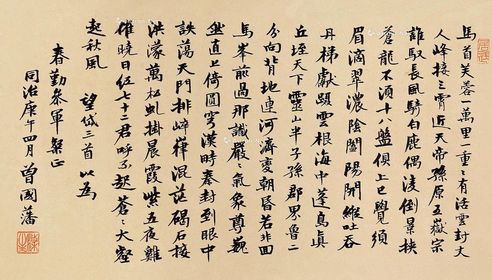 馬首芙蓉一萬里一重々有活雲封丈
人峰接三霄近天帝孫原五嶽宗
誰馭長風騎白鹿偶淩倒景挾
蒼龍不須十八盤上已覺須
眉滴翠濃陰闔陽開縱吐吞
丹梯獻雲根海中蓬島真
丘垤天下靈山半子孫郡界魯二
分向背地連河濟變朝昏若非西
馬峯前過那識嚴々氣象尊巍
然直上倚圓穹漢時秦封到眼中
詄蕩天門排崒嵂混茫碣石接
洪濛萬松虬掛晨霞紫五夜雞
催曉日紅七十二君呼不起蒼々大壑
起秋風 望岱三首以為
春勤參軍粲正
同治庚午四月曾國藩